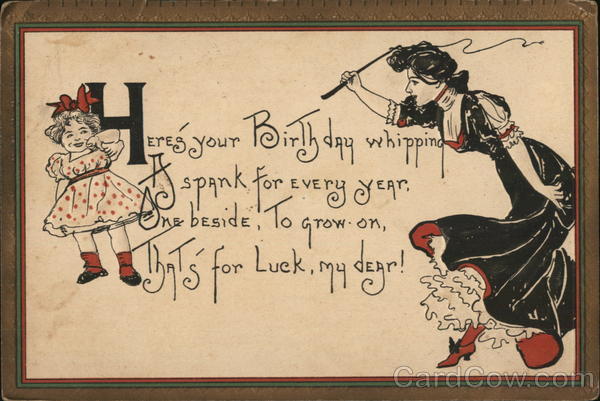 Here's your Birthday whipping
A spank for every year,
One beside, To grow on,
That's for Luck, my dear!
CardCow.com